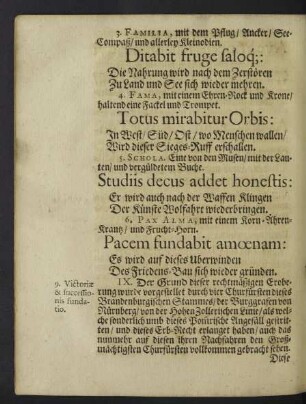 3. FAMILIA, mit dem Pflug/ Ancker/ See-
Compaß/ und allerley Kleinodien.
Ditabit fruge saloq;:
Die Nahrung wird nach dem Zerstören
Zu Land und See sich wieder mehren.
4. FAMA, mit einem Ehren-Rock und Krone/
haltend eine Fackel und Trompet.
Totus mirabitur Orbis:
In West/ Süd/ Ost/ wo Menschen wallen/
Wird dieser Sieges-Ruff erschallen.
5. SCHOLA. Eine von den Musen/ mit der Lau-
ten/ und vergüldetem Buche.
Studiis decus addet honestis:
Er wird auch nach der Waffen Klingen
Der Künste Wolfahrt wiederbringen.
6. PAX ALMA, mit einem Korn-Ähren-
Krantz/ und Frucht-Horn.
Pacem fundabit amœnam:
Es wird auf dieses Uberwinden
Des Friedens-Bau sich wieder gründen.
9. Victoriæ
& successio-
nis funda-
tio.
IX. Der Grund dieser rechtmäßigen Erobe-
rung wurde vorgestellet durch vier Churfürsten dieses
Brandenburgischen Stammes/ der Burggrafen von
Nürnberg/ von der Hohen Zollerischen Linie/ als wel-
che sonderlich umb dieses Pommerische Angefäll gestrit-
ten/ und dieses Erb-Recht erlanget haben/ auch das
nunmehr auf diesen ihren Nachfahren den Groß-
mächtigsten Churfürsten vollkommen gebracht sehen.
Diese